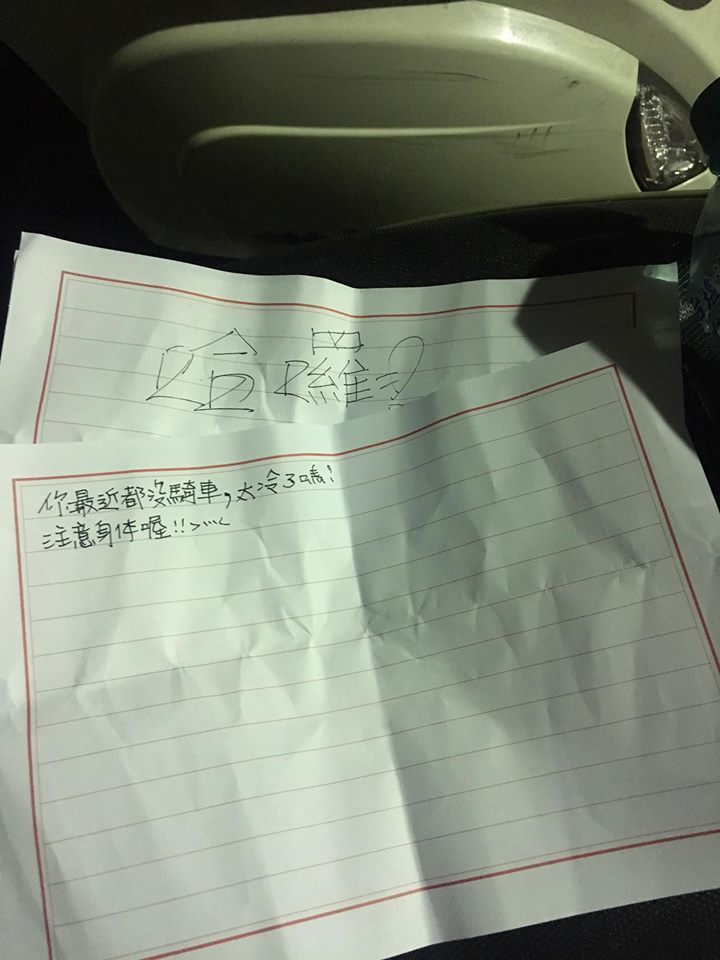 哈囉?
你最近都沒騎車,太冷了嗎?
注意身体喔!!>"<